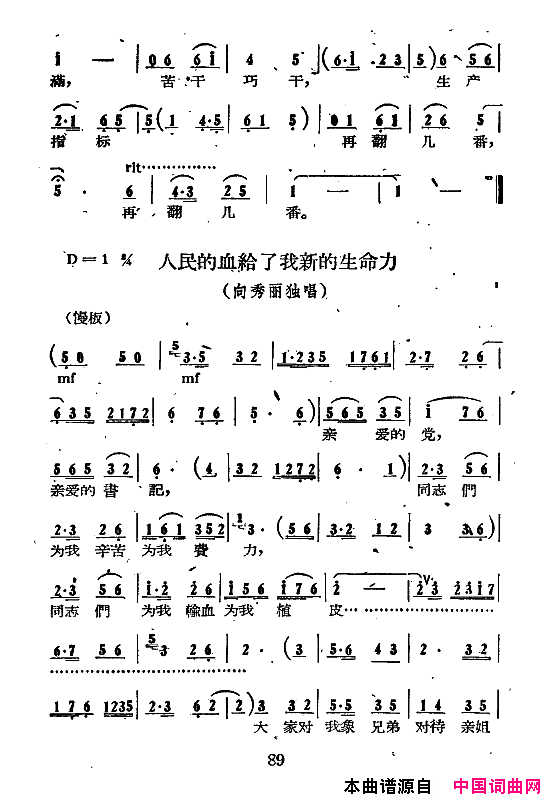 i — | 0 6 6 i | 4 5 | (6·i 2 3 | 5) 6 5 6 |
滿， 苦干 巧干， 生产
2·1 6 5 | 5 (1 4·5 | 6 1 5) | 0 1 6 1 | 2 6 5 |
指 标 再翻 几 番，
rit
5 · 6 | 4·3 2 5 | 1 — | 1 — ‖
再 翻 几 番。
D＝1 2/4 人民的血給了我新的生命力
（向秀丽独唱）
（慢板）
(5 0 5 0 | 5 3·5 3 2 | 1·235 1761 | 2·7 2 6 |
mf mf
6 3 5 2172 | 6 7 6 | 5 · 6 ) | 5 6 5 3 5 | i 7 6 |
亲 爱的 党，
5 6 5 3 2 | 6 · (4 | 3 2 1272 | 6 · 1) | 2·3 5 6 |
亲爱的 書 記， 同志 們
2·3 2 6 | 1 6 1 352 | 3 · (5 6 | 3·2 1 2 | 3 3 6) |
为我 辛苦 为我 費 力，
2·3 5 6 | i·2 2 6 | i 5 i i 7 6 | 2 — | 2 3 2 3 1 7 |
同志 們 为我 輸血 为我 植 皮
6·7 5 6 | 5 3 2 6 | 2 · (3 | 5·6 4 3 | 2 · 3 2 |
1 7 6 1235 | 2·3 6 2 | 2) 3 3 2 | 5·5 3 5 | 4 5 3 2 |
大 家对 我象 兄弟 对待 亲姐
89
本曲谱源自 中国词曲网